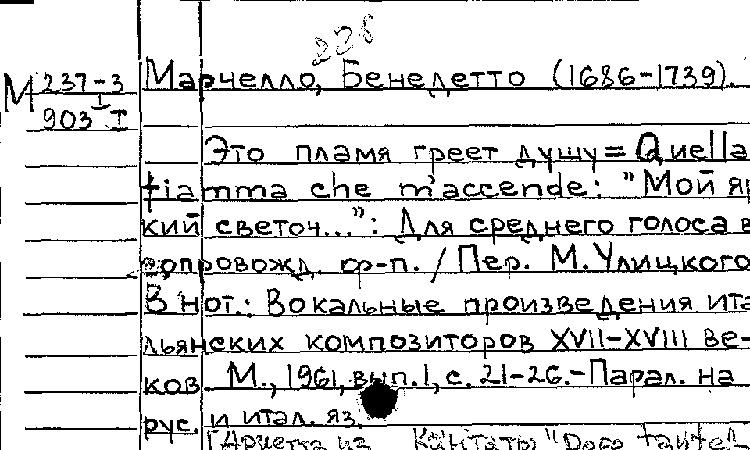 226
М 237-3 Марчелло, Бенедетто (1686-1739).
I
903 I
Это пламя греет душу = Quella
fiamma che m'accende: "Мой яр
кий светоч...": Для среднего голоса в
сопровожд. ф-п. / Пер. М. Улицкого
В нот.: Вокальные произведения ита
льянских композиторов XVII-XVIII ве-
ков. М., 1961, вып. 1, с. 21-26.- Парал. на
рус. и итал. яз.
[Ариетта из Кантаты "Dopo